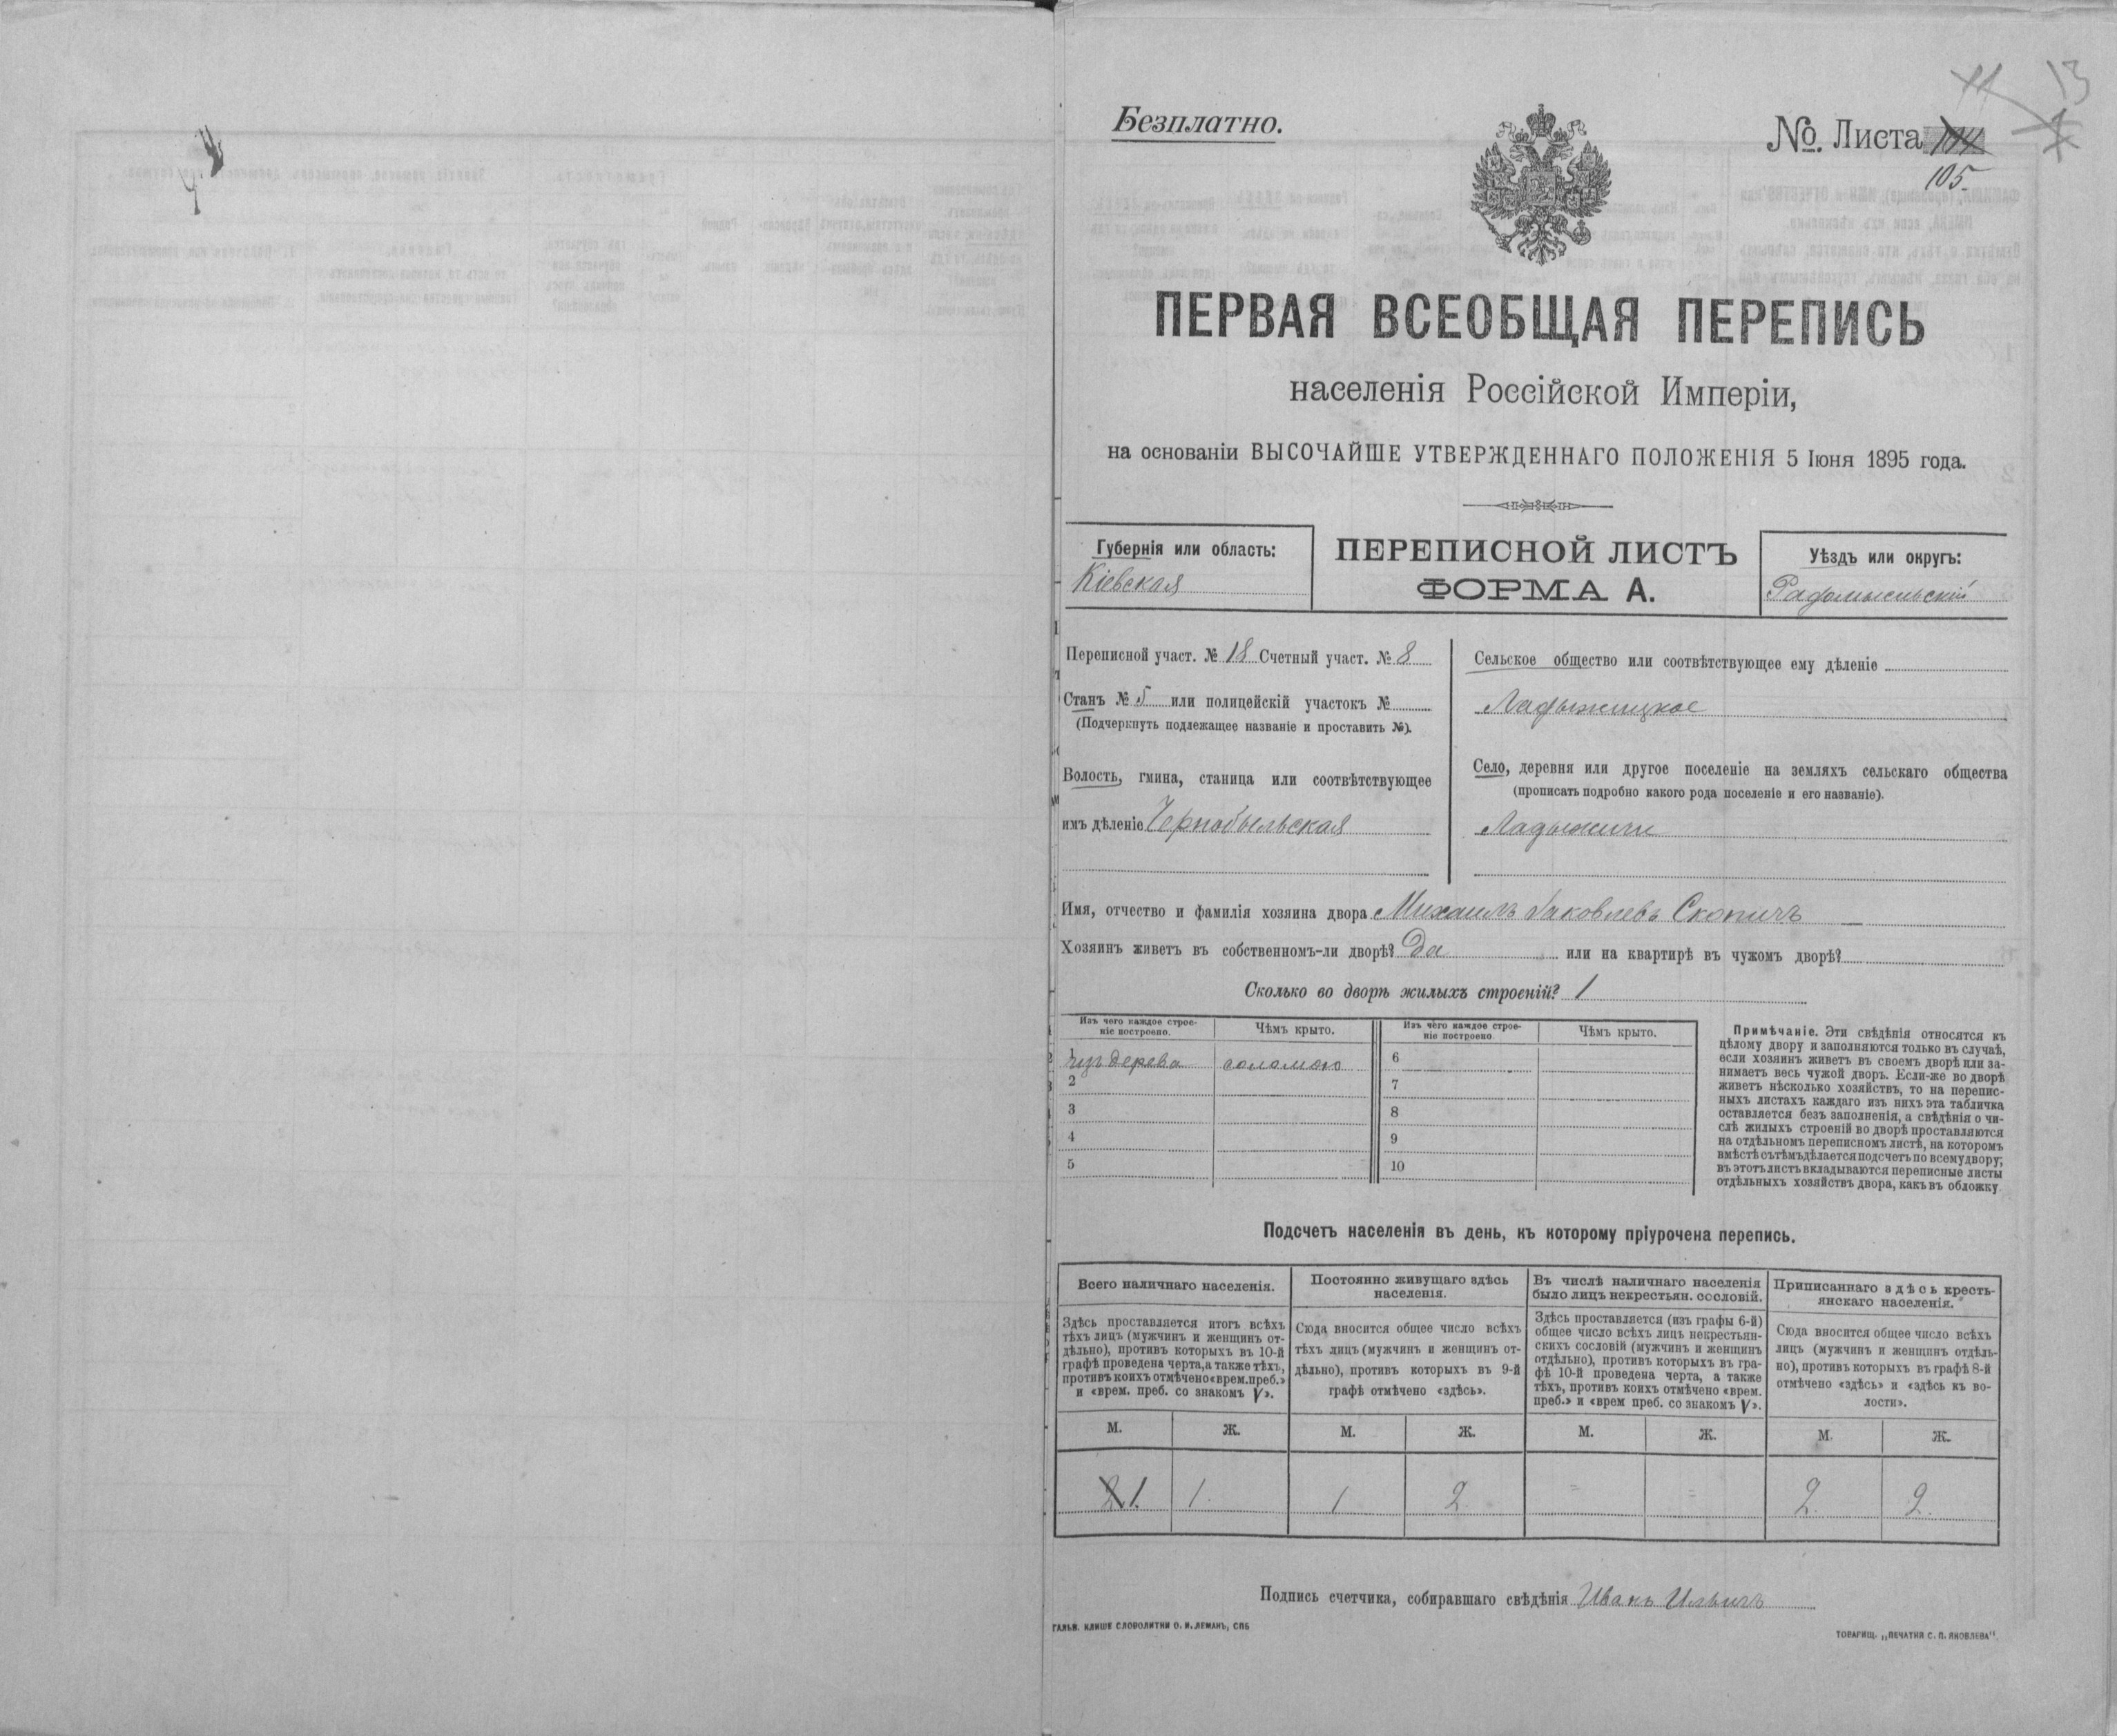 Безплатно.
№. Листа
105.
11
13
ПЕРВАЯ ВСЕОБЩАЯ ПЕРЕПИСЬ
населенія Россійской Имперіи,
на основаніи ВЫСОЧАЙШЕ УТВЕРЖДЕННАГО ПОЛОЖЕНІЯ 5 Іюня 1895 года.
Губернія или область:
Кіевская
ПЕРЕПИСНОЙ ЛИСТЪ
ФОРМА А.
Уѣздъ или округъ:
Радомысльскій
Переписной участ. № 18 Счетный участ. № 8
Станъ № 5 или полицейскій участокъ №
(Подчеркнуть подлежащее названіе и проставить №).
Волость, гмина, станица или соотвѣтствующее
имъ дѣленіе Чернобыльская
Сельское общество или соотвѣтствующее ему дѣленіе
Ладыжицкое
Село, деревня или другое поселеніе на земляхъ сельскаго общества
(прописать подробно какого рода поселеніе и его названіе).
Ладыжичи
Имя, отчество и фамилія хозяина двора Михаилъ Яковлевъ Скопичъ
Хозяинъ живетъ въ собственномъ-ли дворѣ? Да или на квартирѣ въ чужомъ дворѣ?
Сколько во дворѣ жилыхъ строеній? 1
Изъ чего каждое строе-
ніе построено.
Чѣмъ крыто.
Изъ чего каждое строе-
ніе построено
Чѣмъ крыто.
1 изъ дерева соломою 6
2 7
3 8
4 9
5 10
Примѣчаніе. Эти свѣдѣнія относятся къ
цѣлому двору и заполняются только въ случаѣ,
если хозяинъ живетъ въ своемъ дворѣ или за-
нимаетъ весь чужой дворъ. Если-же во дворѣ
живетъ нѣсколько хозяйствъ, то на перепис-
ныхъ листахъ каждаго изъ нихъ эта табличка
оставляется безъ заполненія, а свѣдѣнія о чи-
слѣ жилыхъ строеній во дворѣ проставляются
на отдѣльномъ переписномъ листѣ, на которомъ
вмѣстѣ съ тѣмъ дѣлается подсчетъ по всему двору;
въ этотъ листъ вкладываются переписные листы
отдѣльныхъ хозяйствъ двора, какъ въ обложку
Подсчетъ населенія въ день, къ которому пріурочена перепись.
Всего наличнаго населенія.
Здѣсь проставляется итогъ всѣхъ
тѣхъ лицъ (мужчинъ и женщинъ от-
дѣльно), противъ которыхъ въ 10-й
графѣ проведена черта, а также тѣхъ,
противъ коихъ отмѣчено «врем. преб.»
и «врем. преб. со знакомъ V».
Постоянно живущаго здѣсь
населенія.
Сюда вносится общее число всѣхъ
тѣхъ лицъ (мужчинъ и женщинъ от-
дѣльно), противъ которыхъ въ 9-й
графѣ отмѣчено «здѣсь».
Въ числѣ наличнаго населенія
было лицъ некрестьян. сословій.
Здѣсь проставляется (изъ графы 6-й)
общее число всѣхъ лицъ некрестьян-
скихъ сословій (мужчинъ и женщинъ
отдѣльно), противъ которыхъ въ гра-
фѣ 10-й проведена черта, а также
тѣхъ, противъ коихъ отмѣчено «врем.
преб.» и «врем преб. со знакомъ V».
Приписаннаго здѣсь кресть-
янскаго населенія.
Сюда вносится общее число всѣхъ
лицъ (мужчинъ и женщинъ отдѣль-
но), противъ которыхъ въ графѣ 8-й
отмѣчено «здѣсь» и «здѣсь къ во-
лости».
М. Ж. М. Ж. М. Ж. М. Ж.
2. 1. 1. 1 2 = = 2. 2.
Подпись счетчика, собиравшаго свѣдѣнія Иванъ Ильичъ
ГАЛЬВ. КЛИШЕ СЛОВОЛИТНИ О. И. ЛЕМАНЪ, СПБ
ТОВАРИЩ. „ПЕЧАТНЯ С. П. ЯКОВЛЕВА"